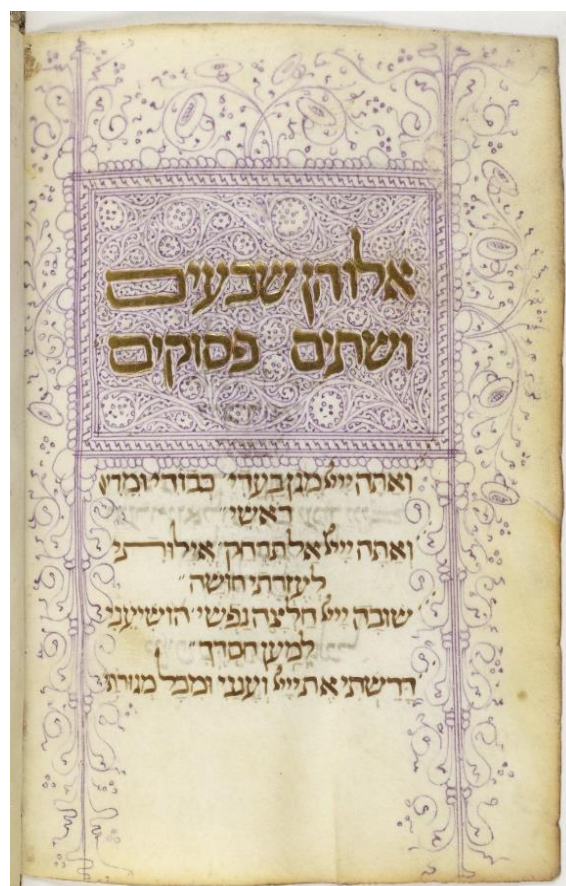 אלוהן שבעים
ושתים פסוקים
ואתה ייי מגן בעדי כבודי ומרים
ראשי״
ואתה ייי אל תרחק אילותי
לעזרתי חושה״
שובה ייי חלצה נפשי הושיעני
למען חסדך״
דרשתי את ייי וענני ומכל מגורתי